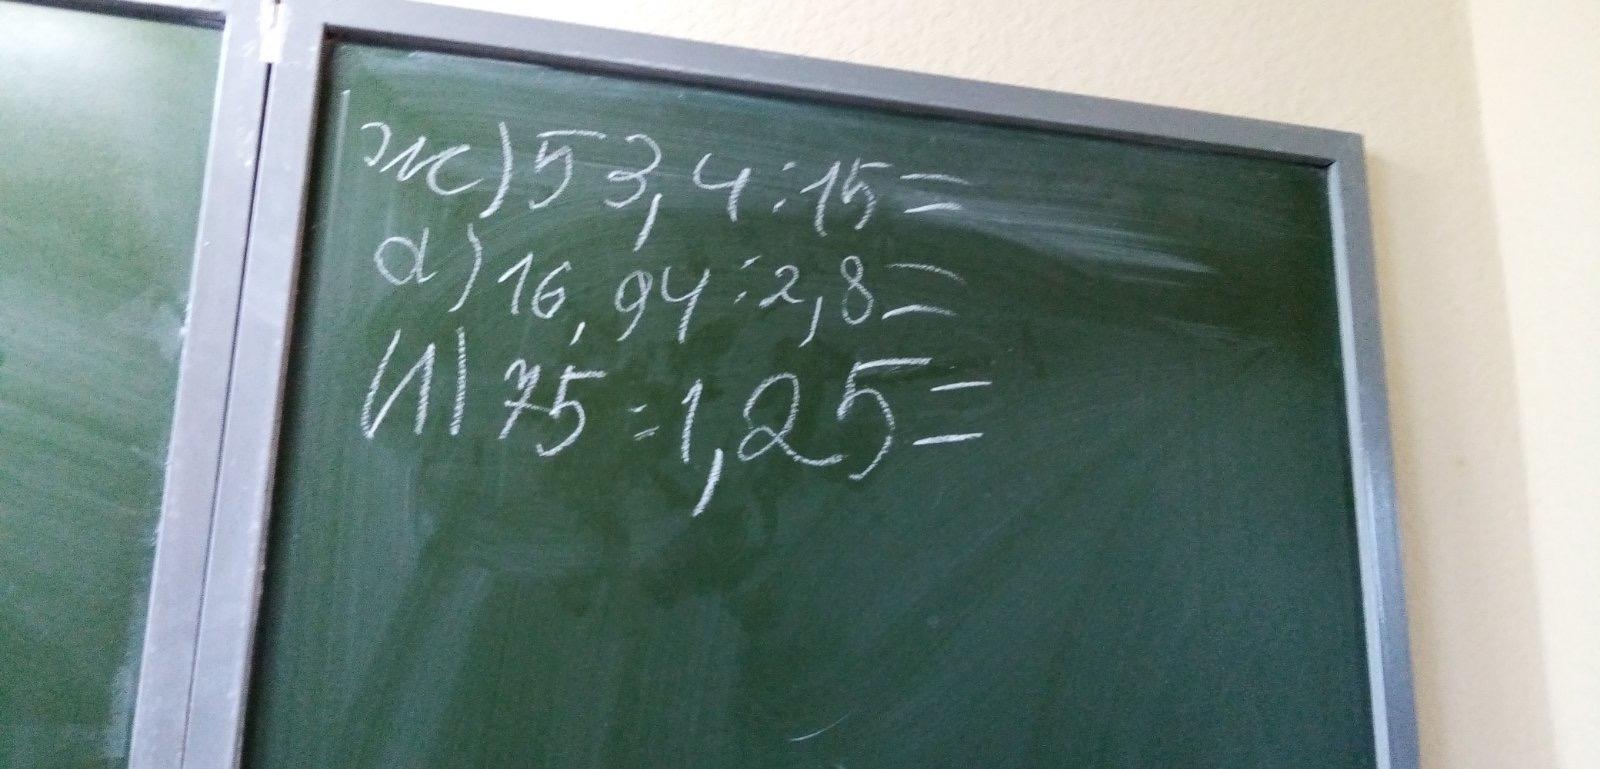 ж) 53,4:15=
а) 16,94:2,8=
и) 75:1,25=